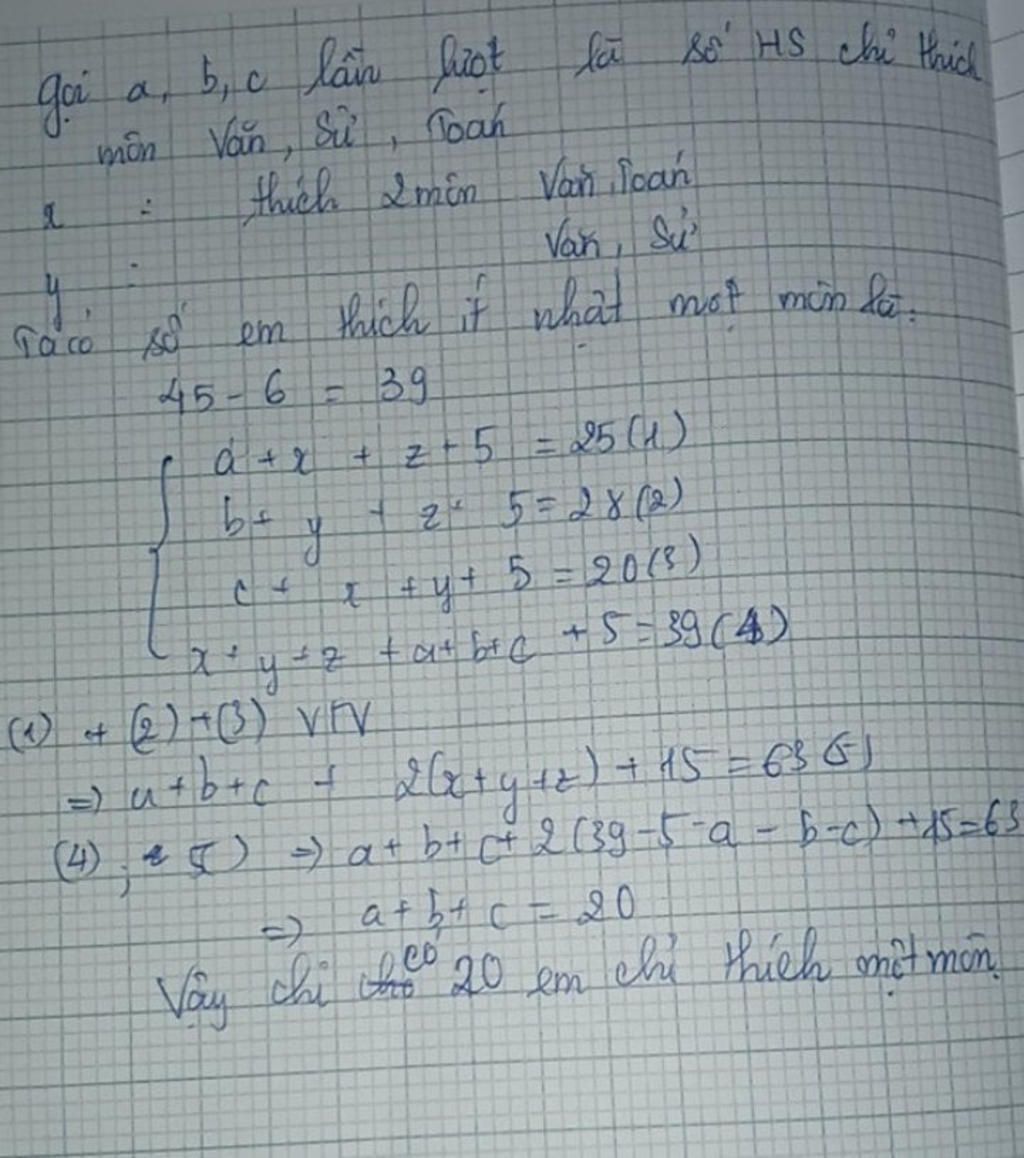 gọi a, b, c lần lượt là số HS chỉ thích
môn Văn, Sử, Toán
x : thích 2 môn Văn, Toán
y : Văn, Sử
Ta có số em thích ít nhất một môn là:
45 - 6 = 39
a + x + z + 5 = 25 (1)
b + y + z + 5 = 28 (2)
c + x + y + 5 = 20 (3)
x + y + z + a + b + c + 5 = 39 (4)
(1) + (2) + (3) VTV
=> a + b + c + 2(x + y + z) + 15 = 63 (5)
(4), 5) => a + b + c + 2(39 - 5 - a - b - c) + 15 = 63
=> a + b + c = 20
Vậy chỉ có 20 em chỉ thích một môn.